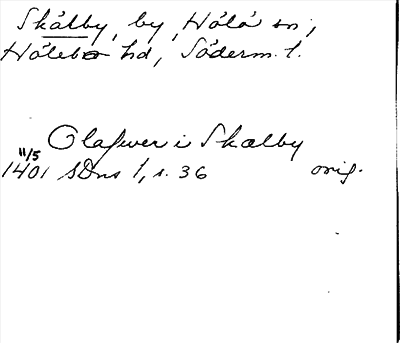 Skålby, by, Hölö sn,
Hölebo hd, Söderm. l.
Olafwer i Skælby
11/5
1401 SDns 1, s. 36 orig.